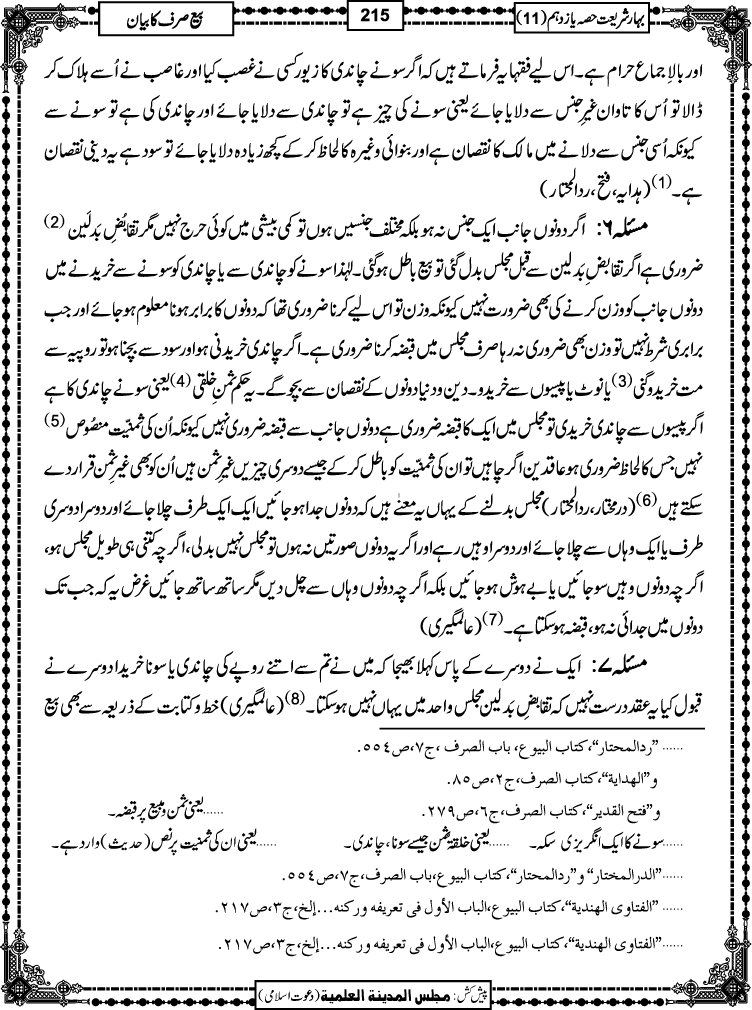 بہارِ شریعت حصہ یازدہم (11)
215
بیع صرف کا بیان
اور بالاجماع حرام ہے۔ اس لیے فقہا یہ فرماتے ہیں کہ اگر سونے چاندی کا زیور کسی نے غصب کیا اور غاصب نے اُسے ہلاک کر
ڈالا تو اُس کا تاوان غیرِ جنس سے دلایا جائے یعنی سونے کی چیز ہے تو چاندی سے دلایا جائے اور چاندی کی ہے تو سونے سے
کیونکہ اُسی جنس سے دلانے میں مالک کا نقصان ہے اور بنوائی وغیرہ کا لحاظ کرکے کچھ زیادہ دلایا جائے تو سود ہے یہ دینی نقصان
ہے۔(1) (ہدایہ، فتح، ردالمحتار)
مسئلہ ۶: اگر دونوں جانب ایک جنس نہ ہو بلکہ مختلف جنسیں ہوں تو کمی بیشی میں کوئی حرج نہیں مگر تقابضِ بدلین (2)
ضروری ہے اگر تقابضِ بدلین سے قبل مجلس بدل گئی تو بیع باطل ہوگئی۔ لہٰذا سونے کو چاندی سے یا چاندی کو سونے سے خریدنے میں
دونوں جانب کو وزن کرنے کی بھی ضرورت نہیں کیونکہ وزن تو اس لیے کرنا ضروری تھا کہ دونوں کا برابر ہونا معلوم ہوجائے اور جب
برابری شرط نہیں تو وزن بھی ضروری نہ رہا صرف مجلس میں قبضہ کرنا ضروری ہے۔ اگر چاندی خریدنی ہو اور سود سے بچنا ہو تو روپیہ سے
مت خریدو گنی (3) یا نوٹ یا پیسوں سے خریدو۔ دین و دنیا دونوں کے نقصان سے بچو گے۔ یہ حکم ثمنِ خلقی (4) یعنی سونے چاندی کا ہے
اگر پیسوں سے چاندی خریدی تو مجلس میں ایک کا قبضہ ضروری ہے دونوں جانب سے قبضہ ضروری نہیں کیونکہ اُن کی ثمنیت منصوص (5)
نہیں جس کا لحاظ ضروری ہو عاقدین اگر چاہیں تو ان کی ثمنیت کو باطل کرکے جیسے دوسری چیزیں غیرِ ثمن ہیں اُن کو بھی غیرِ ثمن قرار دے
سکتے ہیں (6) (درمختار، ردالمحتار) مجلس بدلنے کے یہاں یہ معنےٰ ہیں کہ دونوں جدا ہوجائیں ایک ایک طرف چلا جائے اور دوسرا دوسری
طرف یا ایک وہاں سے چلا جائے اور دوسرا وہیں رہے اور اگر یہ دونوں صورتیں نہ ہوں تو مجلس نہیں بدلی، اگرچہ کتنی ہی طویل مجلس ہو،
اگرچہ دونوں وہیں سوجائیں یا بے ہوش ہوجائیں بلکہ اگرچہ دونوں وہاں سے چل دیں مگر ساتھ ساتھ جائیں غرض یہ کہ جب تک
دونوں میں جدائی نہ ہو، قبضہ ہوسکتا ہے۔(7) (عالمگیری)
مسئلہ ۷: ایک نے دوسرے کے پاس کہلا بھیجا کہ میں نے تم سے اتنے روپے کی چاندی یا سونا خریدا دوسرے نے
قبول کیا یہ عقد درست نہیں کہ تقابضِ بدلین مجلسِ واحد میں یہاں نہیں ہوسکتا۔(8) (عالمگیری) خط و کتابت کے ذریعہ سے بھی بیع
...... ”ردالمحتار“، کتاب البیوع، باب الصرف، ج۷، ص۵۵٤.
و”الھدایة“، کتاب الصرف، ج۲، ص۸۵.
و”فتح القدیر“، کتاب الصرف، ج۶، ص۲۷۹. ......یعنی ثمن و مبیع پر قبضہ۔
......سونے کا ایک انگریزی سکہ۔ ......یعنی خلقۃً ثمن جیسے سونا، چاندی۔ ......یعنی ان کی ثمنیت پر نص (حدیث) وارد ہے۔
......”الدرالمختار“ و”ردالمحتار“، کتاب البیوع، باب الصرف، ج۷، ص۵۵٤.
...... ”الفتاوی الھندیة“، کتاب البیوع، الباب الأول فی تعریفه ورکنه...إلخ، ج۳، ص۲۱۷.
......”الفتاوی الھندیة“، کتاب البیوع، الباب الأول فی تعریفه ورکنه...إلخ، ج۳، ص۲۱۷.
پیش کش: مجلس المدینة العلمیة (دعوتِ اسلامی)